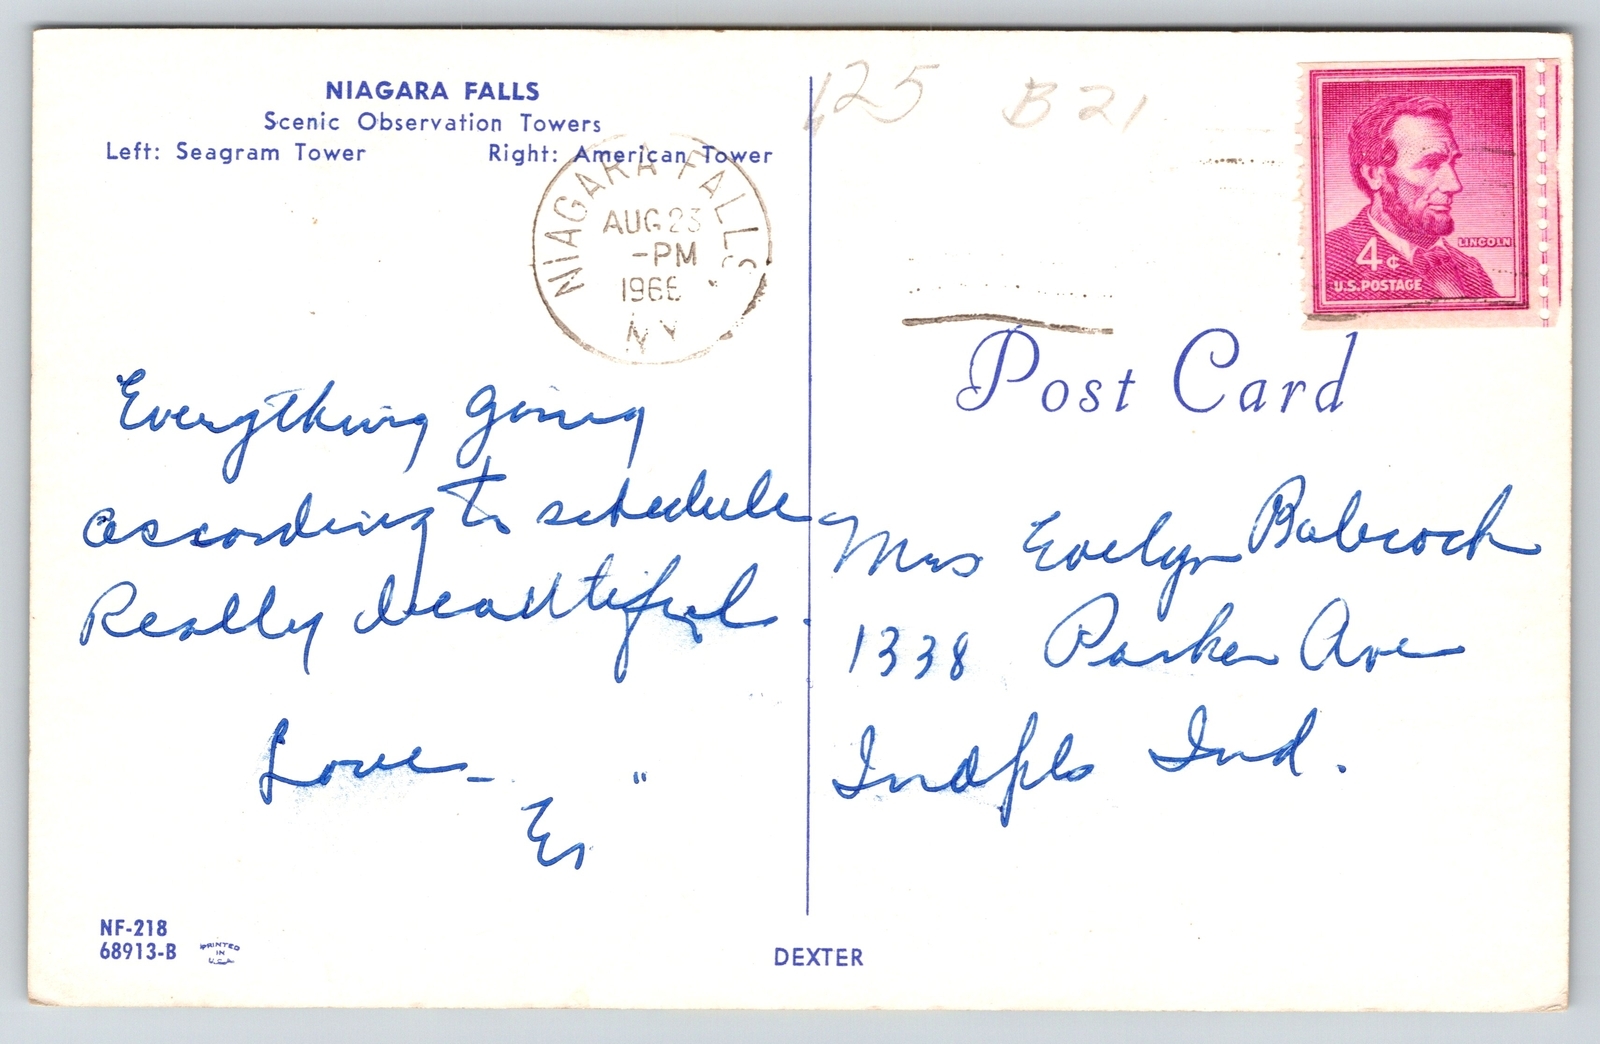 NIAGARA FALLS
Scenic Observation Towers
Left: Seagram Tower Right: American Tower
NIAGARA FALLS
AUG 23
-PM
1966
NY
125 B21
LINCOLN
4¢
U.S. POSTAGE
Post Card
Everything going
according to schedule
Really beautiful.
Love -
"
Mrs Evelyn Babcock
1338 Parker Ave
Indpls Ind.
NF-218
68913-B
PRINTED
IN
U.S.A.
DEXTER